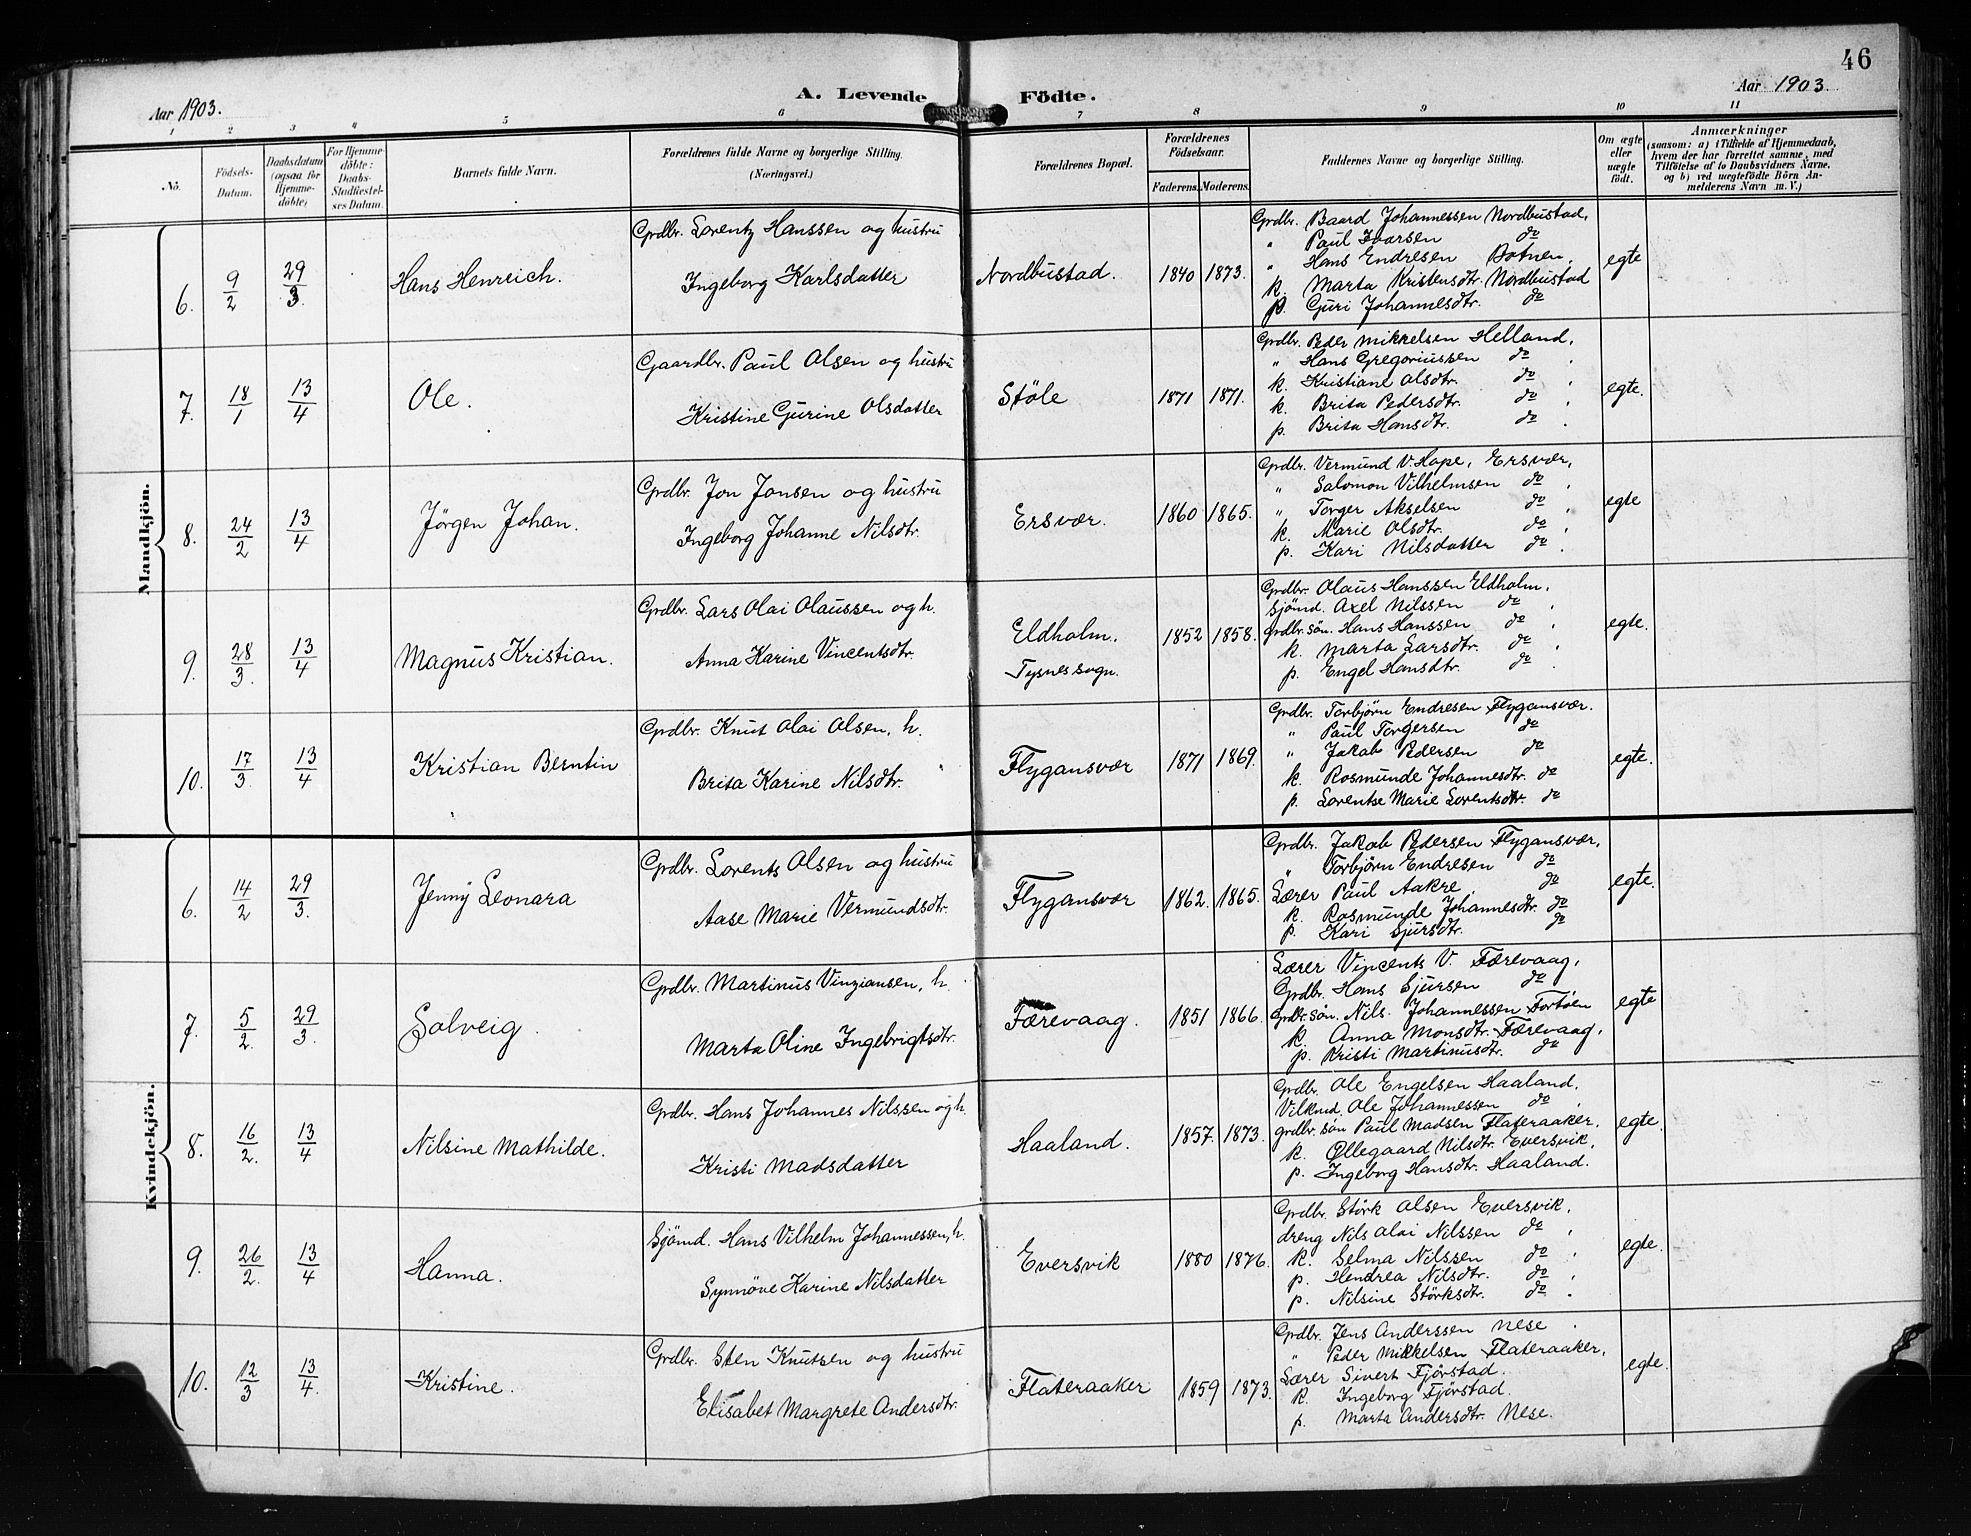 46
Aar 1903.
A. Levende Födte.
Aar 1903
1 2 3 4 5 6 7 8 9 10 11
No.
Födsels-Datum.
Daabsdatum (ogsaa for Hjemme-döbte)
For Hjemme-döbte: Daabs-Stadfæstel-ses Datum.
Barnets fulde Navn.
Forældrenes fulde Navne og borgerlige Stilling. (Næringsvei.)
Forældrenes Bopæl.
Forældrenes Födselsaar.
Faderens. Moderens.
Faddernes Navne og borgerlige Stilling.
Om ægte eller uægte födt.
Anmærkninger
(saasom: a) i Tilfælde af Hjemmedaab, hvem der har forrettet samme, med Tilföielse af to Daabsvidners Navne, og b) ved uægtefödte Börn An-melderens Navn m. V.)
Mandkjön.
6. 9/2 29/3 Hans Henreich.
Grdbr. Lorentz Hanssen og hustru
Ingeborg Karlsdatter
Nordbustad. 1840 1873.
Grdbr. Baard Johannessen Nordbustad,
" Paul Ivarsen do
" Hans Endresen Botnen,
k. Marta Kristensdtr. Nordbustad
p. Guri Johannesdtr. do
egte
7. 18/1 13/4 Ole.
Gaardbr. Paul Olsen og hustru
Kristine Gurine Olsdatter
Stöle 1871 1871.
Grdbr. Peder Mikkelsen Helland,
" Hans Gregoriussen do,
k. Kristiane Olsdtr. do,
k. Brita Pedersdtr. do,
p. Brita Hansdtr. do.
egte.
8. 24/2 13/4 Jörgen Johan.
Grdbr. Jon Jonsen og hustru
Ingeborg Johanne Nilsdtr.
Ersvær. 1860 1865.
Grdbr. Vermund V. Hope, Ersvær,
" Salomon Vilhelmsen do,
" Torger Akselsen do,
k. Marie Olsdtr. do,
p. Kari Nilsdatter do.
egte
9. 28/3. 13/4 Magnus Kristian.
Grdbr. Lars Olai Olaussen og h.
Anna Karine Vincentsdtr.
Eldholm.
Tysnessogn.
1852 1858.
Grdbr. Olaus Hanssen Eldholm,
Sjömd. Axel Nilssen do,
Grdbr.sön. Hans Hanssen do,
k. Marta Larsdtr. do,
p. Engel Hansdtr. do.
egte.
10. 17/3 13/4 Kristian Berntin
Grdbr. Knut Olai Olsen, h.
Brita Karine Nilsdtr.
Flygansvær 1871 1869.
Grdbr. Torbjörn Endresen Flygansvær.
" Paul Torgersen do
" Jakob Pedersen do
k. Rosmunde Johannesdtr. do
p. Lorentse Marie Lorentsdtr. do
egte.
Kvindekjön.
6. 14/2 29/3. Jenny Leonara
Grdbr. Lorents Olsen og hustru
Aase Marie Vermundsdtr.
Flygansvær 1862. 1865.
Grdbr. Jakob Pedersen Flygansvær,
" Torbjörn Endresen do
Lærer Paul Aakre. do
k. Rosmunde Johannesdtr. do
p. Kari Sjursdtr. do
egte.
7. 5/2. 29/3. Solveig.
Grdbr. Martinus Vinziansen, h.
Marta Oline Ingebrigtsdtr.
Færevaag. 1851 1866.
Lærer Vincents V. Færevaag,
Grdbr. Hans Sjursen do
Grdbr.sön. Nils Johannessen Fortöen
k. Anna Monsdtr. Færevaag,
p. Kristi Martinusdtr. do
egte
8. 16/2. 13/4 Nilsine Mathilde.
Grdbr. Hans Johannes Nilssen og h.
Kristi Madsdatter
Haaland. 1857. 1873.
Grdbr. Ole Engelsen Haaland,
Vilkmd. Ole Johannessen do,
grdbr. sön Paul Madsen Flateraaker,
k. Øllegaard Nilsdtr. Eversvik,
p. Ingeborg Hansdtr. Haaland.
egte.
9. 26/2. 13/4 Hanna.
Sjömd. Hans Vilhelm Johannessen, h.
Synnöve Karine Nilsdatter
Eversvik 1880 1876.
Grdbr. Störk Olsen Eversvik,
dreng Nils Olai Nilssen do,
k. Selma Nilssen do,
p. Hendrea Nilsdtr. do,
p. Nilsine Störksdtr. do.
egte.
10. 12/3 13/4. Kristine.
Grdbr. Sten Knutsen og hustru
Elisabet Margrete Andersdtr.
Flateraaker 1859 1873.
Grdbr. Jens Anderssen Nese.
" Peder Mikkelsen Flateraaker,
Lærer Sivert Fjörstad.
k. Ingeborg Fjörstad.
p. Marta Andersdtr. Nese.
egte.